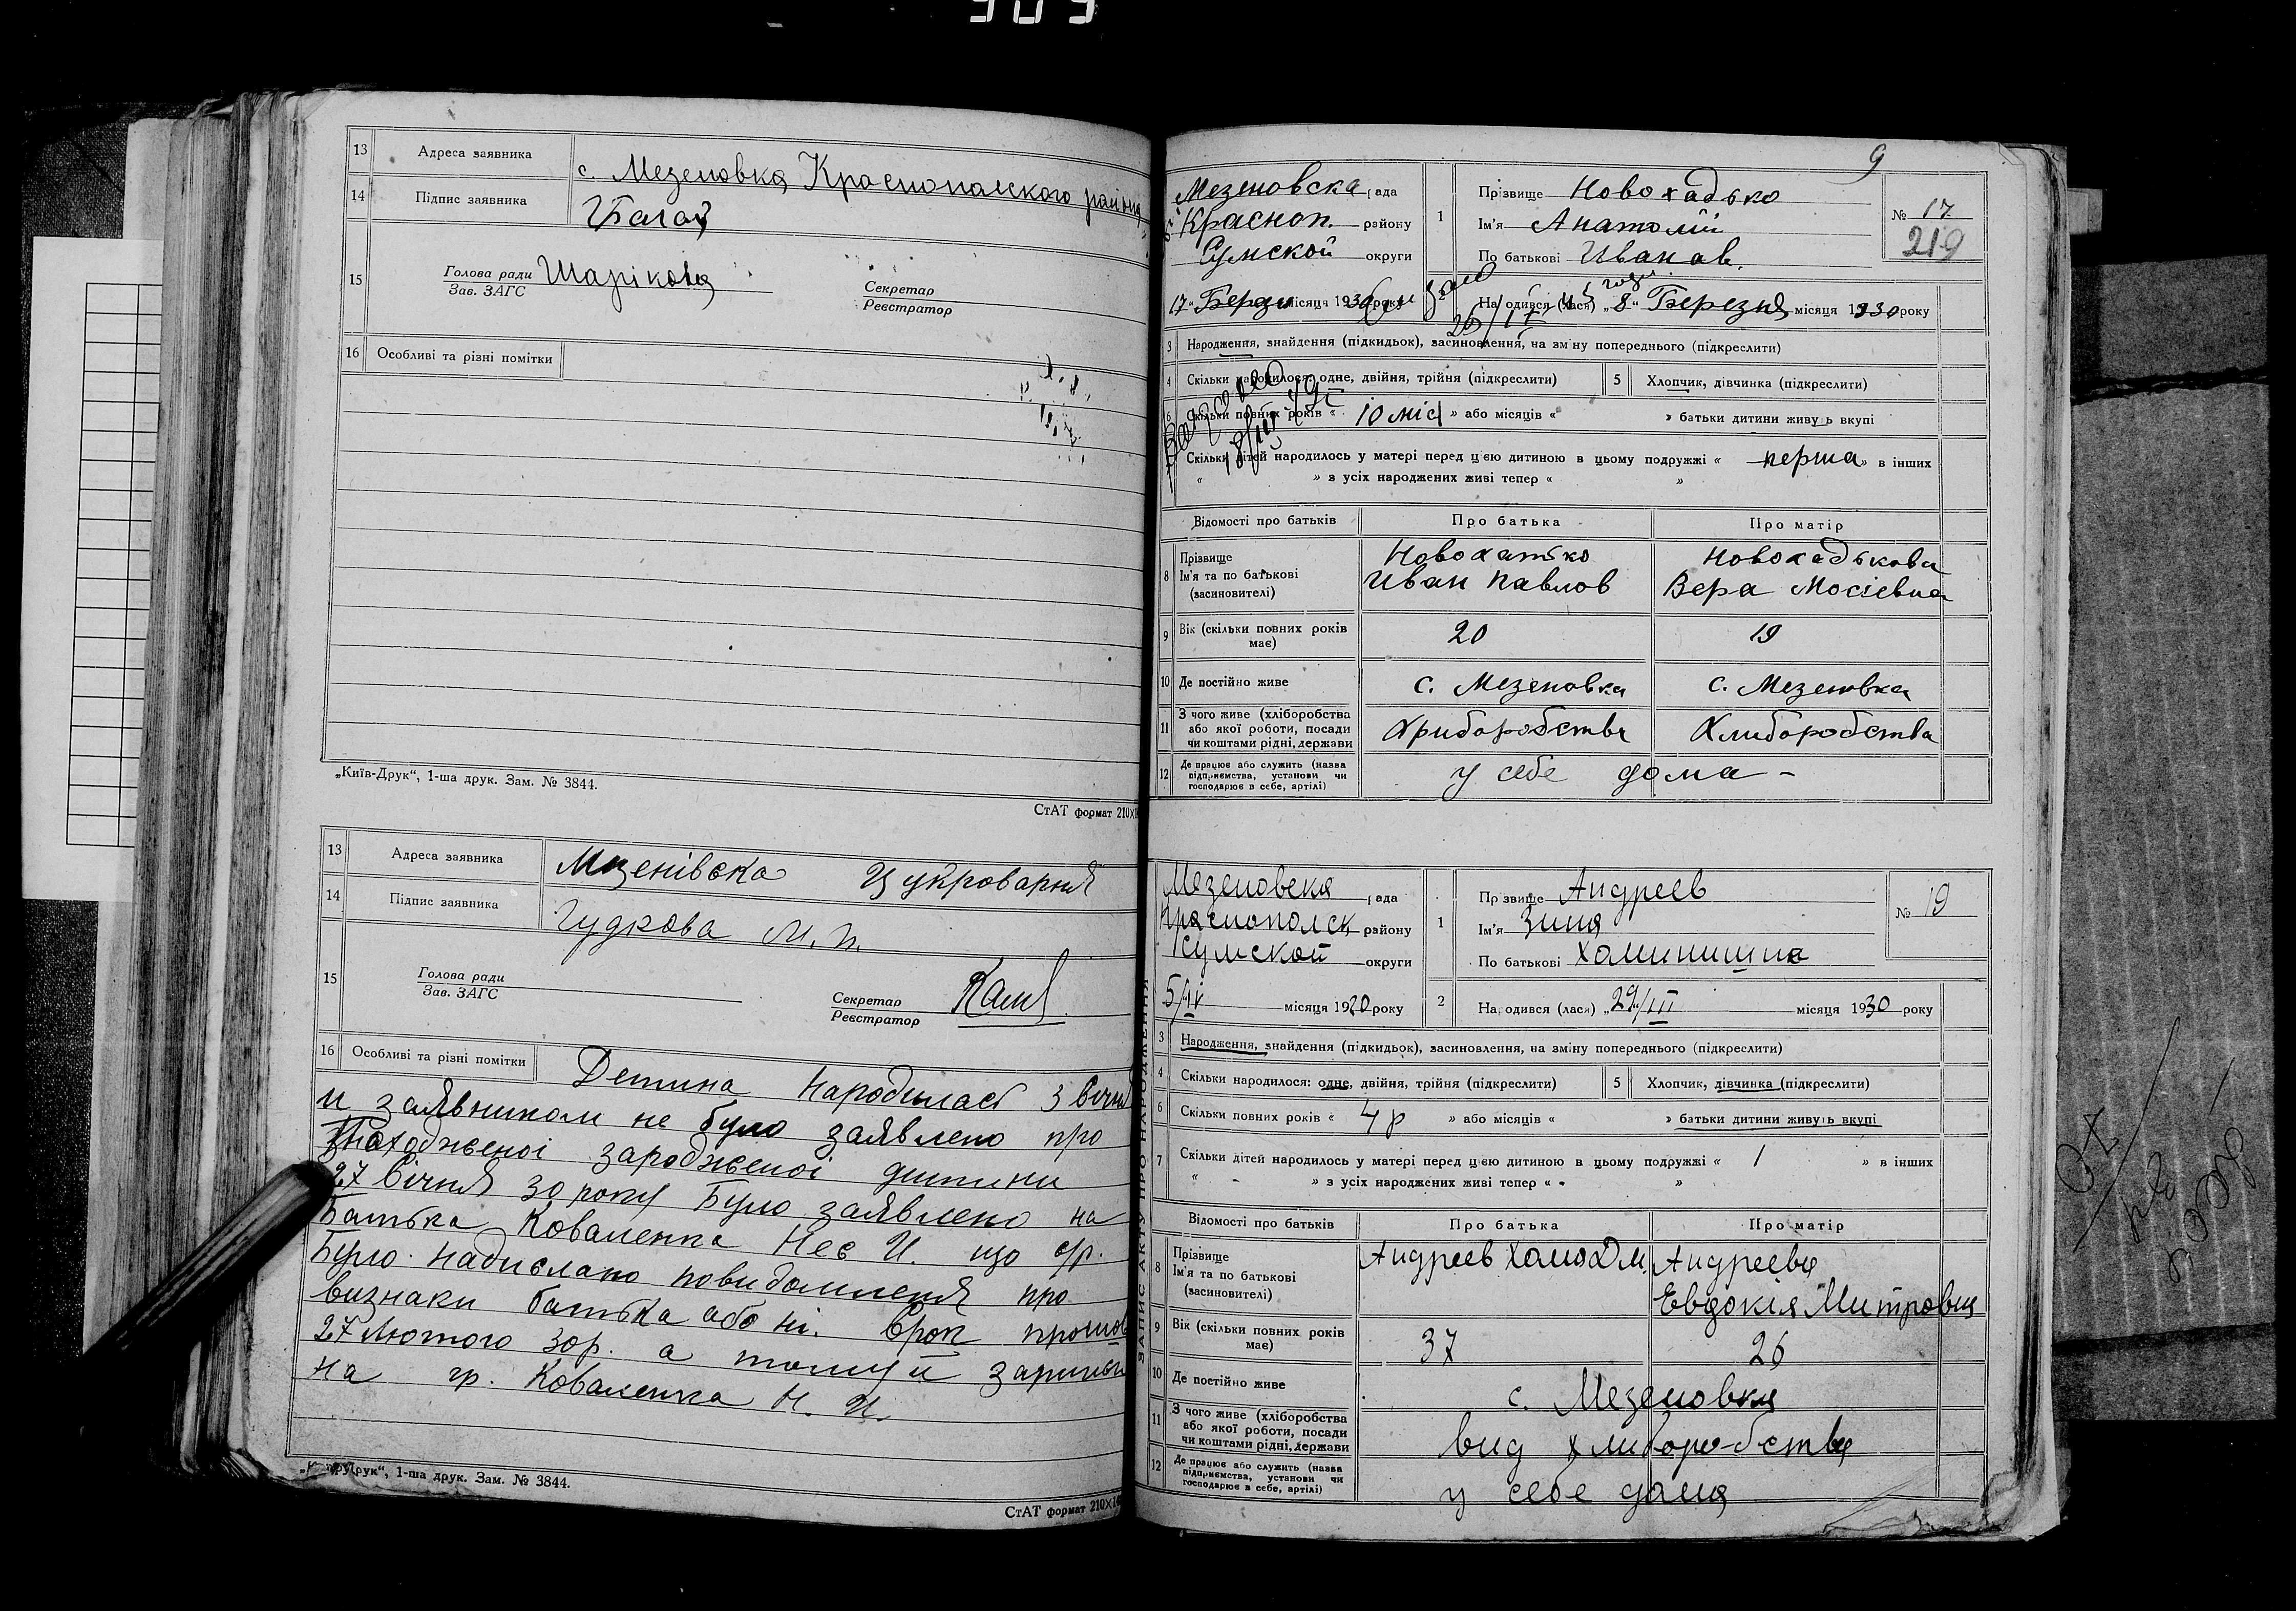 13 Адреса заявника с. Мезеновка Краснопольского района
14 Підпис заявника
15 Голова ради Шарікова
Зав. ЗАГС
Секретар
Реєстратор
16 Особливі та різні помітки
„Київ-Друк“, 1-ша друк. Зам. № 3844.
СтАТ формат 210×
13 Адреса заявника Мизенівска Цукроварня
14 Підпис заявника Гудкова М. П.
15 Голова ради
Зав. ЗАГС
Секретар
Реєстратор
16 Особливі та різні помітки Детина народилась 3 Січня
и заявником не було заявлено про
зародженоі дитини
27 Січня 30 року Було заявлено на
Батька Коваленка И. що гр.
Було надислано повидомленя про
визнаки батька або ні. Срок прошов
27 Лютого 30р. а тому й
на гр. Коваленка Н. И.
друк“, 1-ша друк. Зам. № 3844.
СтАТ формат 210×
9
Мезеновска рада
Красноп. району
Сумской округи
17 Берез місяця 1930 року
1 Прізвище Новохадько
Ім'я Анатолій
По батькові Иванав.
№ 17
219
2 Народився (лася) „8“ Березня місяця 1930 року
3 Народження, знайдення (підкидьок), засиновлення, на зміну попереднього (підкреслити)
4 Скільки народилося: одне, двійня, трійня (підкреслити) 5 Хлопчик, дівчинка (підкреслити)
6 Скільки повних років « 10 міс » або місяців « » батьки дитини живуть вкупі
Скільки дітей народилось у матері перед цією дитиною в цьому подружжі « перша » в інших
« » з усіх народжених живі тепер « »
Відомості про батьків Про батька Про матір
8 Прізвище Новохатько Новохадькова
Ім'я та по батькові Иван Павлов Вера Мосіевна
(засиновителі)
9 Вік (скільки повних років має) 20 19
10 Де постійно живе с. Мезеновка с. Мезеновка
11 З чого живе (хліборобства або якої роботи, посади чи коштами рідні, держави Хриборобства Хлиборобства
12 Де працює або служить (назва підприємства, установи чи господарює в себе, артілі) у себе дома -
ЗАПИС АКТУ ПРО НАРОДЖЕННЯ
Мезеновска рада
Краснополск району
Сумской округи
5/IV місяця 1930 року
1 Прізвище Андреев
Ім'я Зина
По батькові
№ 19
2 Народився (лася) „29“/III місяця 1930 року
3 Народження, знайдення (підкидьок), засиновлення, на зміну попереднього (підкреслити)
4 Скільки народилося: одне, двійня, трійня (підкреслити) 5 Хлопчик, дівчинка (підкреслити)
6 Скільки повних років « 4 р » або місяців « » батьки дитини живуть вкупі
7 Скільки дітей народилось у матері перед цією дитиною в цьому подружжі « 1 » в інших
« - » з усіх народжених живі тепер « »
Відомості про батьків Про батька Про матір
8 Прізвище Андреев Хома Дм. Андреева
Ім'я та по батькові Евдокія Митровна
(засиновителі)
9 Вік (скільки повних років має) 37 26
10 Де постійно живе с. Мезеновка
11 З чого живе (хліборобства або якої роботи, посади чи коштами рідні, держави вид хлиборобства
12 Де працює або служить (назва підприємства, установи чи господарює в себе, артілі) у себе дома